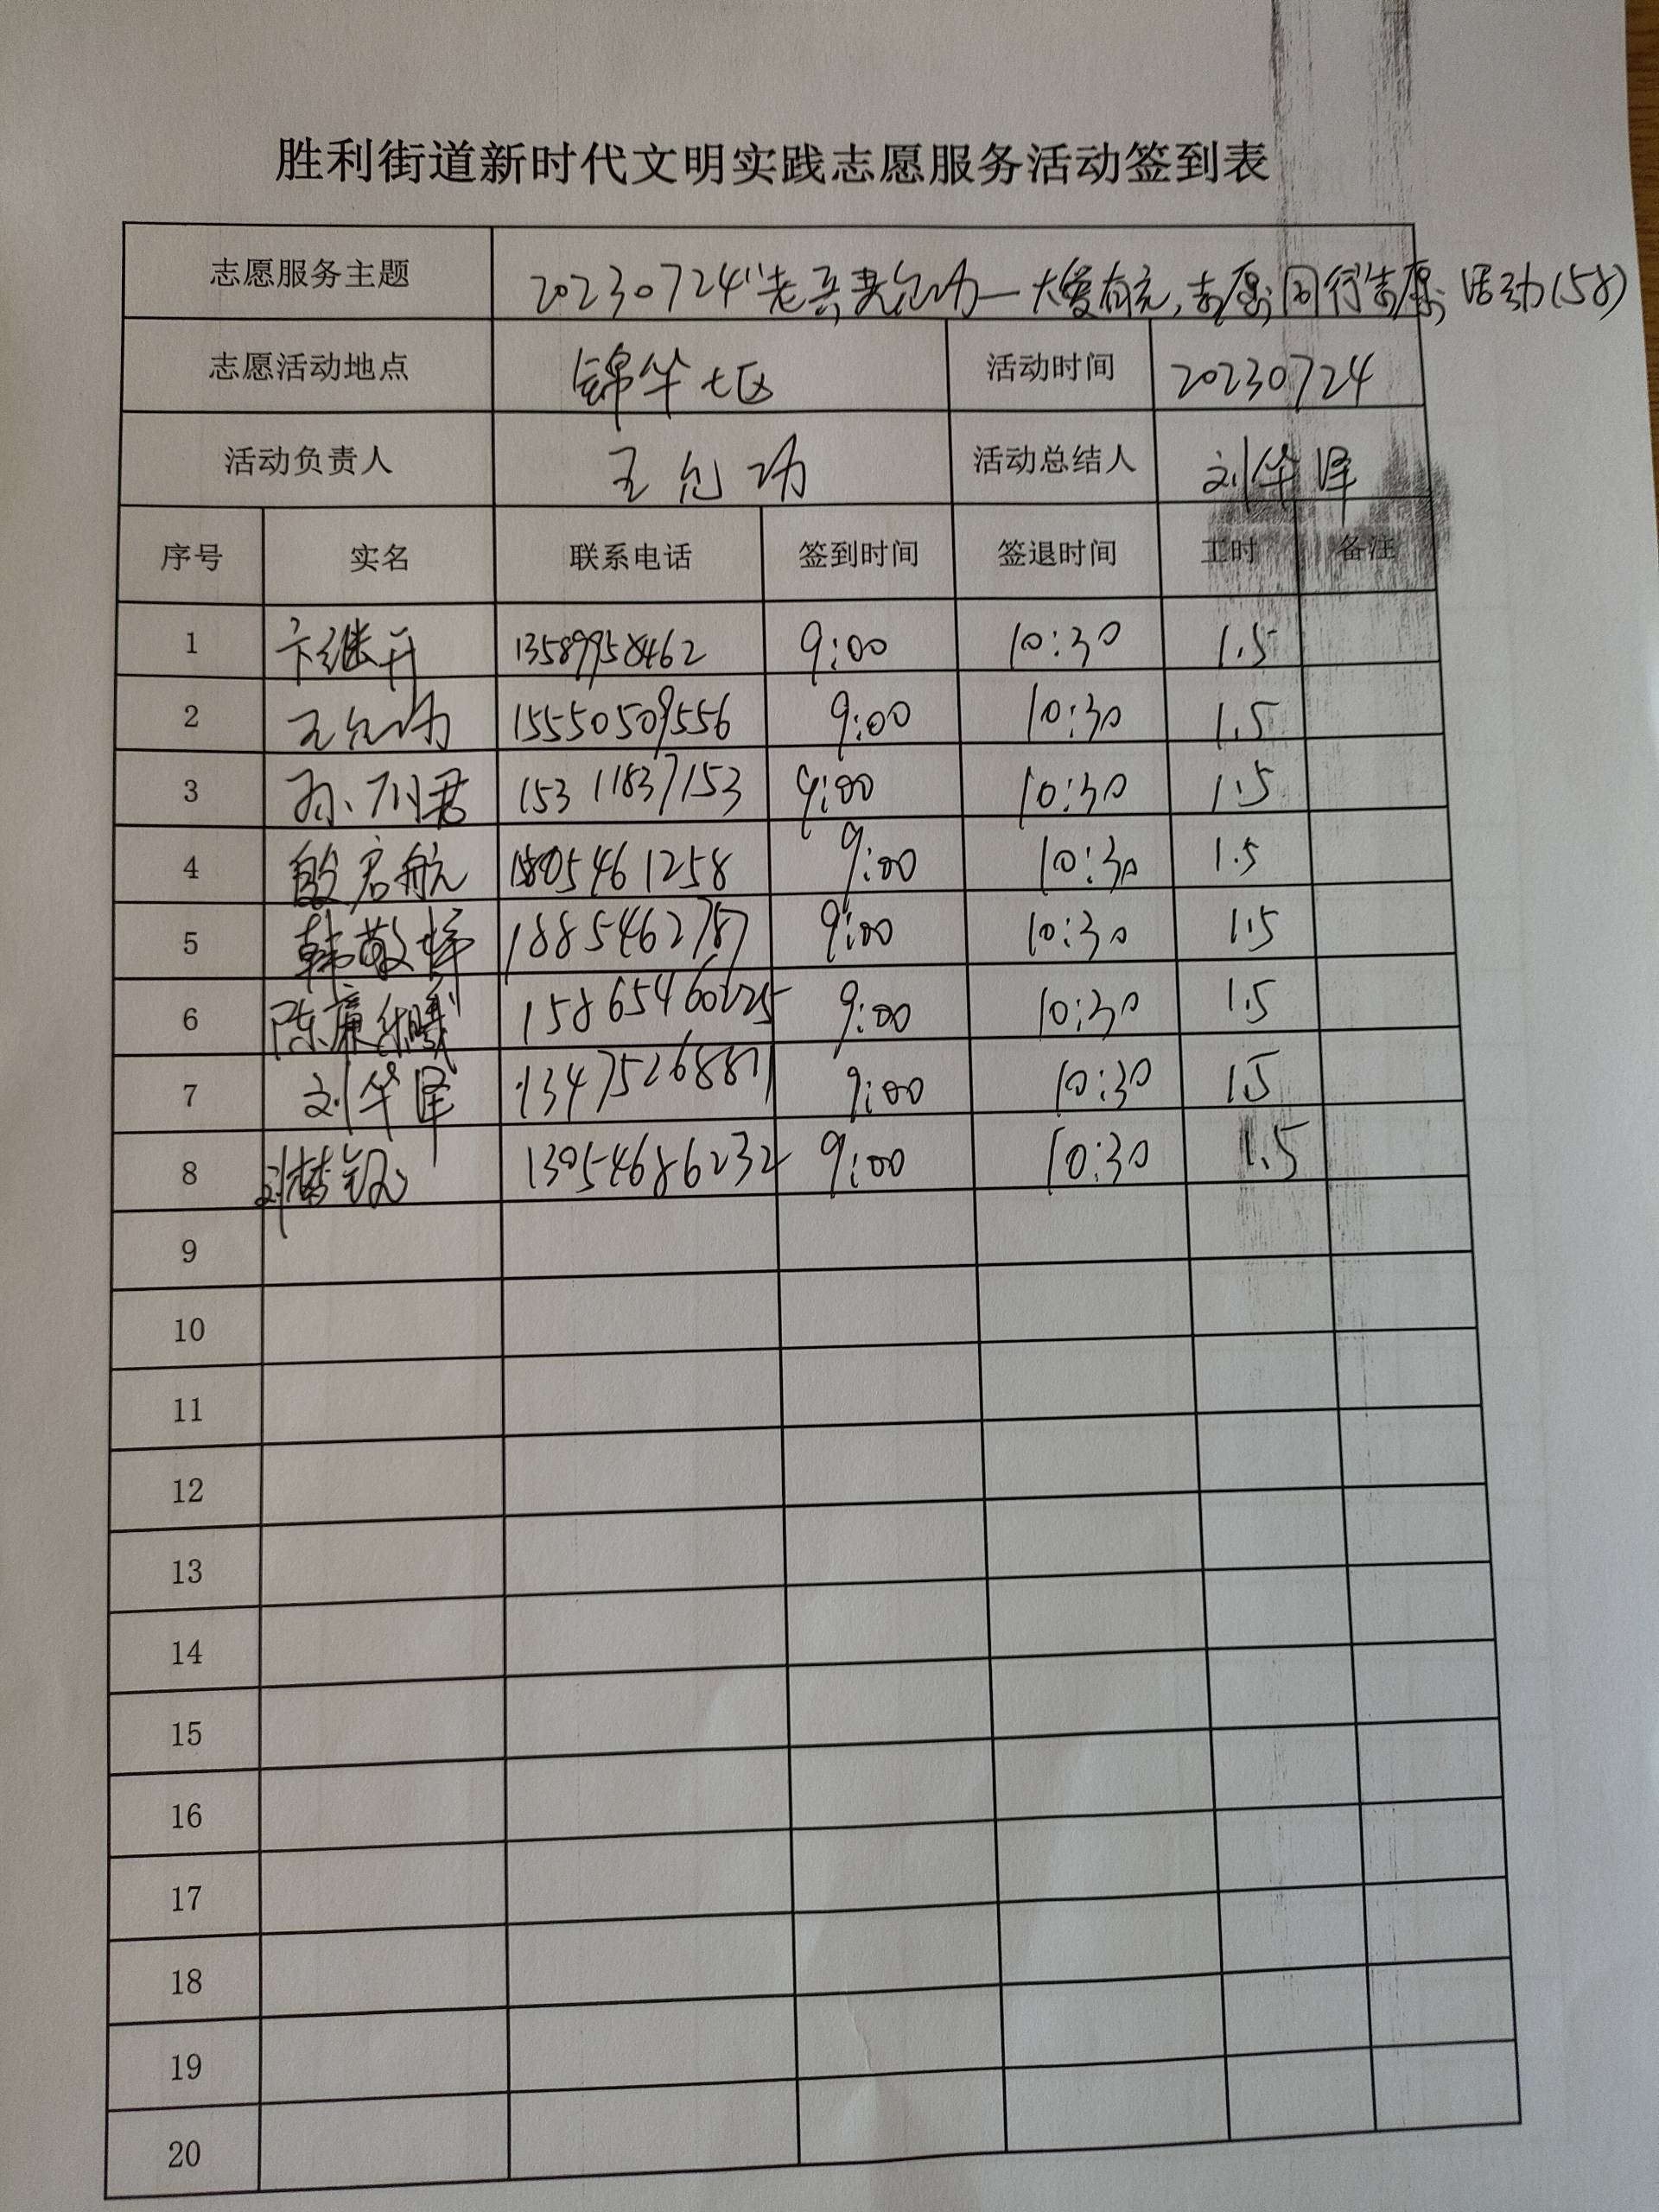 胜利街道新时代文明实践志愿服务活动签到表
志愿服务主题 20230724"老兵 允功—大爱有元,志愿同行"志愿活动(58)
志愿活动地点 锦华七区 活动时间 20230724
活动负责人 王允功 活动总结人 刘华泽
序号 实名 联系电话 签到时间 签退时间 工时 备注
1 卞继升 13589958462 9:00 10:30 1.5
2 王允功 15550509556 9:00 10:30 1.5
3 孙 君 15311837153 9:00 10:30 1.5
4 殷启航 5461258 9:00 10:30 1.5
5 韩敬 1885462787 9:00 10:30 1.5
6 陈 曦 9:00 10:30 1.5
7 刘华泽 9:00 10:30 1.5
8 13954686232 9:00 10:30 1.5
9
10
11
12
13
14
15
16
17
18
19
20